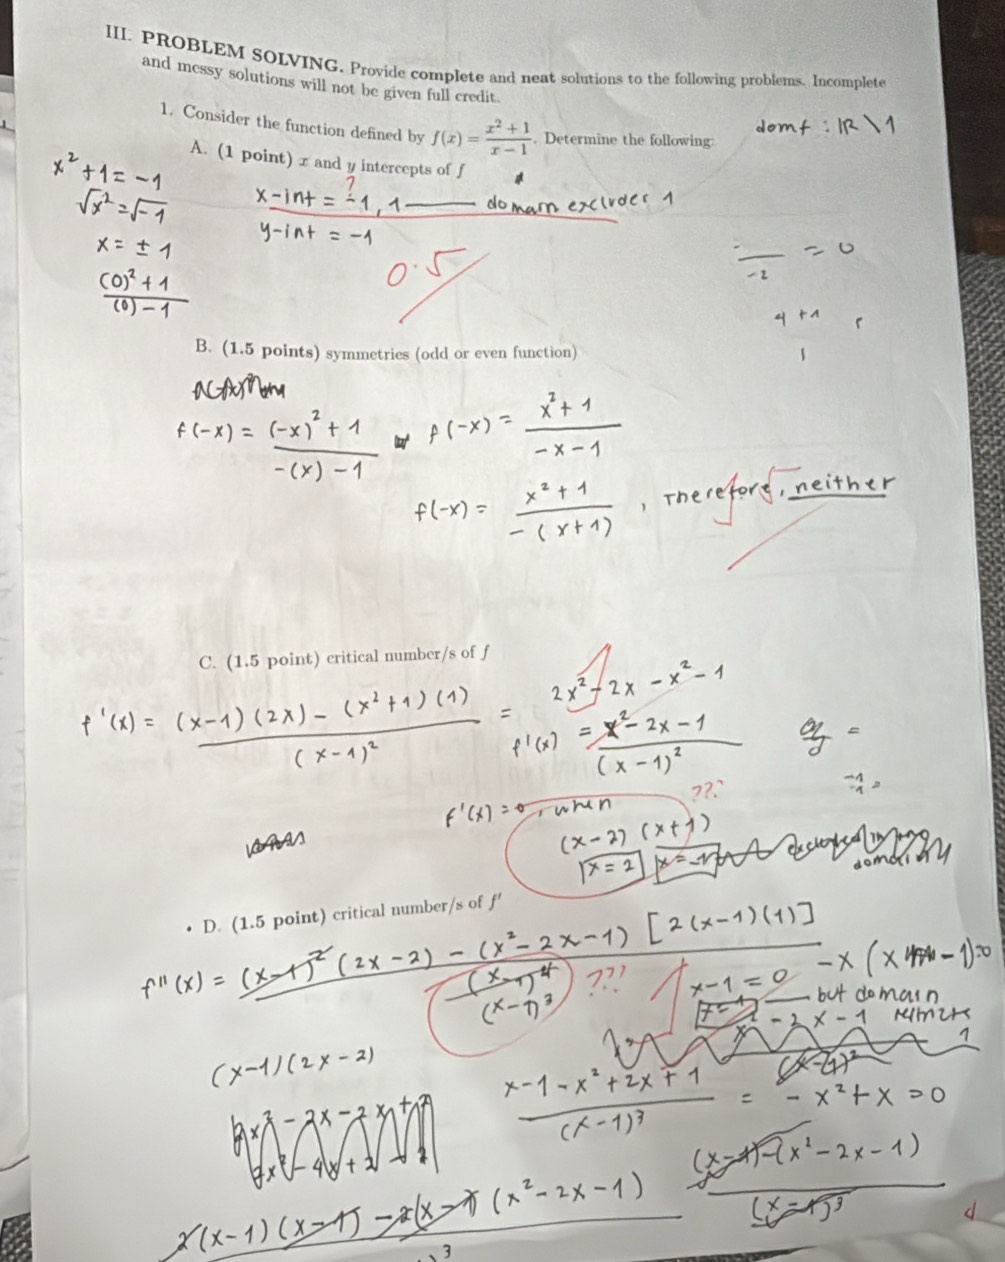 III. PROBLEM SOLVING. Provide complete and neat solutions to the following problems. Incomplete
and messy solutions will not be given full credit.
1. Consider the function defined by f(x) = (x² + 1)/(x − 1). Determine the following:
domf : ℝ \ 1
A. (1 point) x and y intercepts of f
x² + 1 = -1
√x² = √-1
x = ± 1
(0)² + 1
(0) - 1
?
x-int = -1, 1 —— domain excludes 1
y-int = -1
0.5
-2 = 0
4 + 1
1
B. (1.5 points) symmetries (odd or even function)
f(-x) = ((-x)² + 1)/(-(x) - 1)
f(-x) = (x² + 1)/(-x - 1)
f(-x) = (x² + 1)/(-(x+1)), Therefore, neither
C. (1.5 point) critical number/s of f
f'(x) = ((x-1)(2x) - (x²+1)(1))/(x-1)² = 2x² - 2x - x² - 1
1
f'(x) = (x² - 2x - 1)/(x-1)²
f'(x) = 0, when
???
(x-2)(x+1)
x = 2 x = -1
domain
• D. (1.5 point) critical number/s of f′
f"(x) = ((x-1)² (2x-2) - (x²-2x-1) [2(x-1)(1)])/(x-1)⁴
(x-1)³
???
1
-x (x - 1)=0
x-1 = 0
but domain
x² - 2x - 1
(x-1)²
1
(x-1)(2x-2)
2x² - 2x - 2x + 2
2x² - 4x + 2
(x-1-x²+2x+1)/(x-1)³ = -x²+x = 0
((x-1)-(x²-2x-1))/(x-1)³
2(x-1)(x-1) - 2(x-1)(x²-2x-1)
3